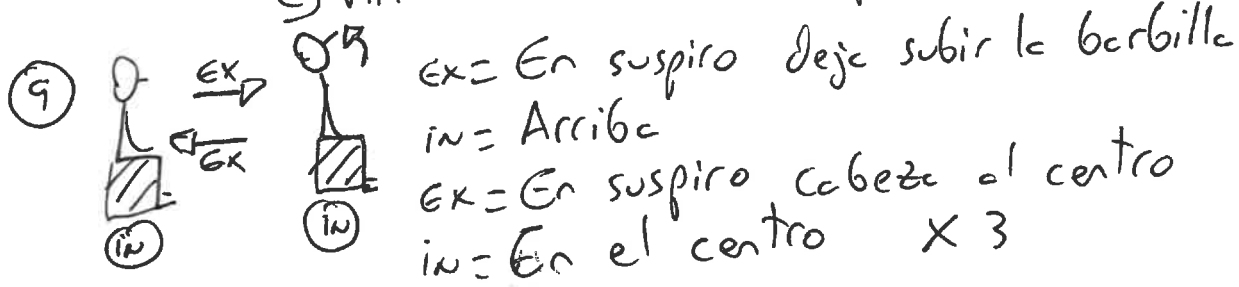 9 EX EX in in
EX= En suspiro deja subir la barbilla
in= Arriba
EX= En suspiro cabeza al centro
in= En el centro x 3